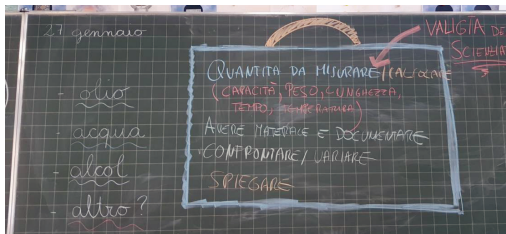 27 gennaio
- olio
- acqua
- alcol
- altro?
VALIGIA DE
SCIENZIA
QUANTITÀ DA MISURARE/CALCOLARE
(CAPACITÀ, PESO, LUNGHEZZA,
TEMPO, TEMPERATURA)
AVERE MATERIALE E DOCUMENTARE
CONFRONTARE/VARIARE
SPIEGARE